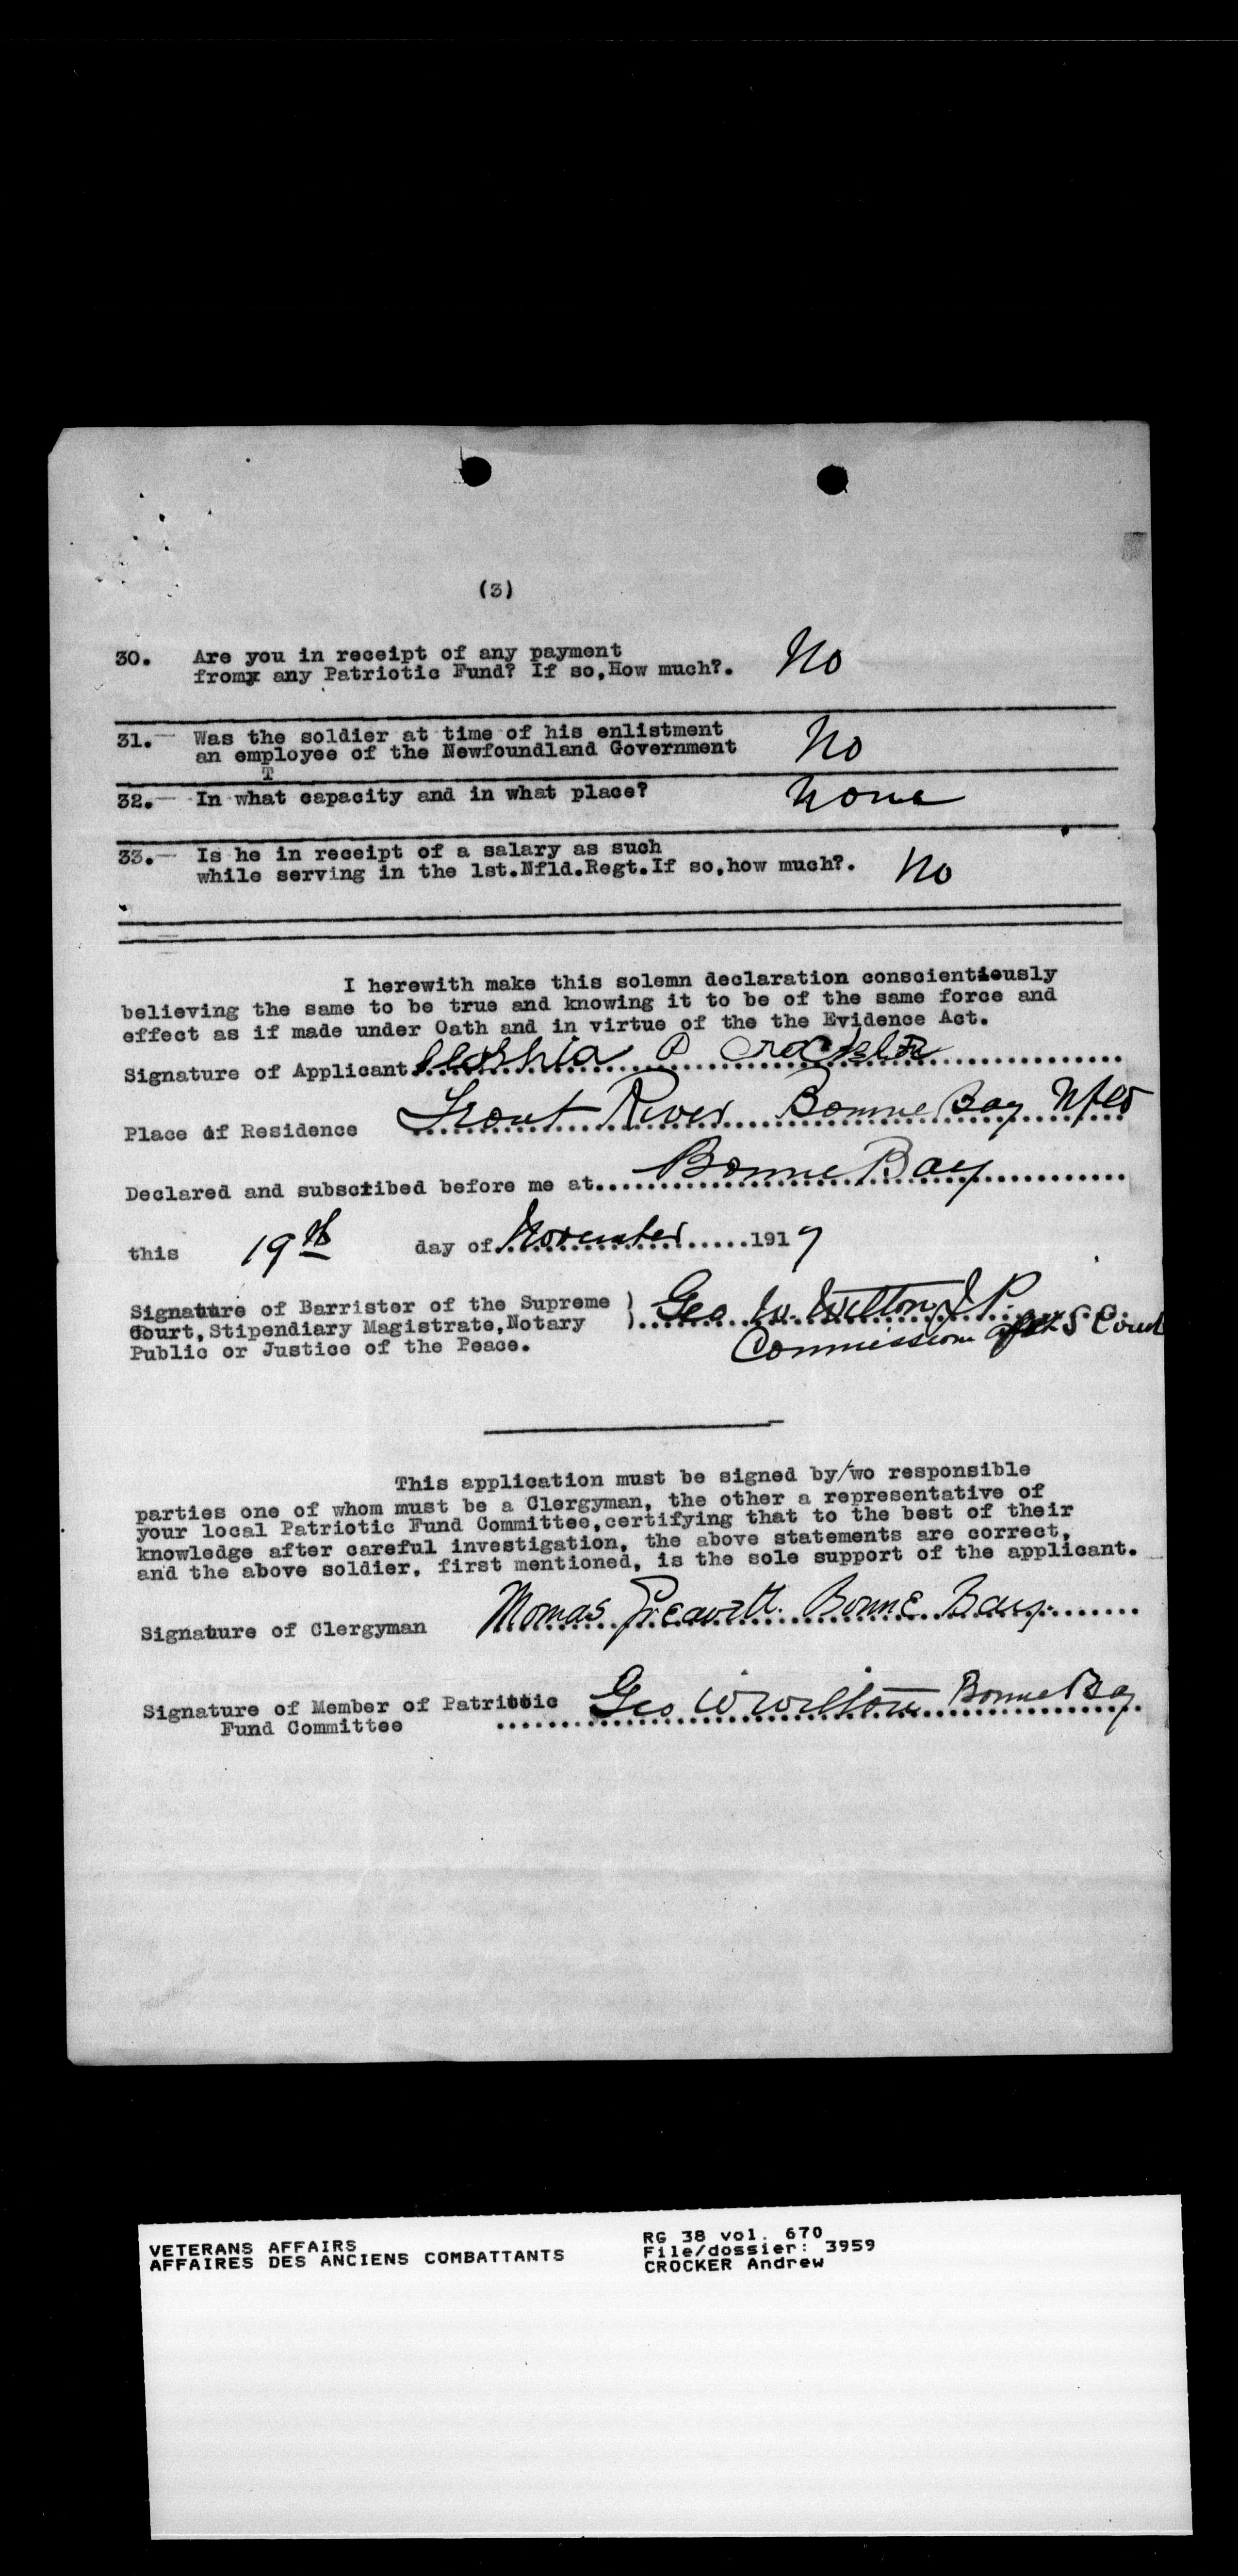 (3)
30. Are you in receipt of any payment
fromx any Patriotic Fund? If so,How much?. No
31.- Was the soldier at time of his enlistment
an employee of the Newfoundland Government No
T
32.- In what capacity and in what place? None
33.- Is he in receipt of a salary as such
while serving in the 1st.Nfld.Regt.If so,how much?. No
I herewith make this solemn declaration conscientiously
believing the same to be true and knowing it to be of the same force and
effect as if made under Oath and in virtue of the the Evidence Act.
Signature of Applicant A Crocker
Place of Residence Trout River Bonne Bay Nfld
Declared and subscribed before me at Bonne Bay
this 19th day of November 1917
Signature of Barrister of the Supreme )
Court,Stipendiary Magistrate,Notary ) Geo W. Wilton J P.
Public or Justice of the Peace. Commissioner S Court
This application must be signed by/two responsible
parties one of whom must be a Clergyman, the other a representative of
your local Patriotic Fund Committee,certifying that to the best of their
knowledge after careful investigation, the above statements are correct,
and the above soldier, first mentioned, is the sole support of the applicant.
Signature of Clergyman Thomas Bonne Bay.
Signature of Member of Patriotic Geo W Wilton Bonne Bay
Fund Committee
VETERANS AFFAIRS
AFFAIRES DES ANCIENS COMBATTANTS
RG 38 vol. 670
File/dossier: 3959
CROCKER Andrew